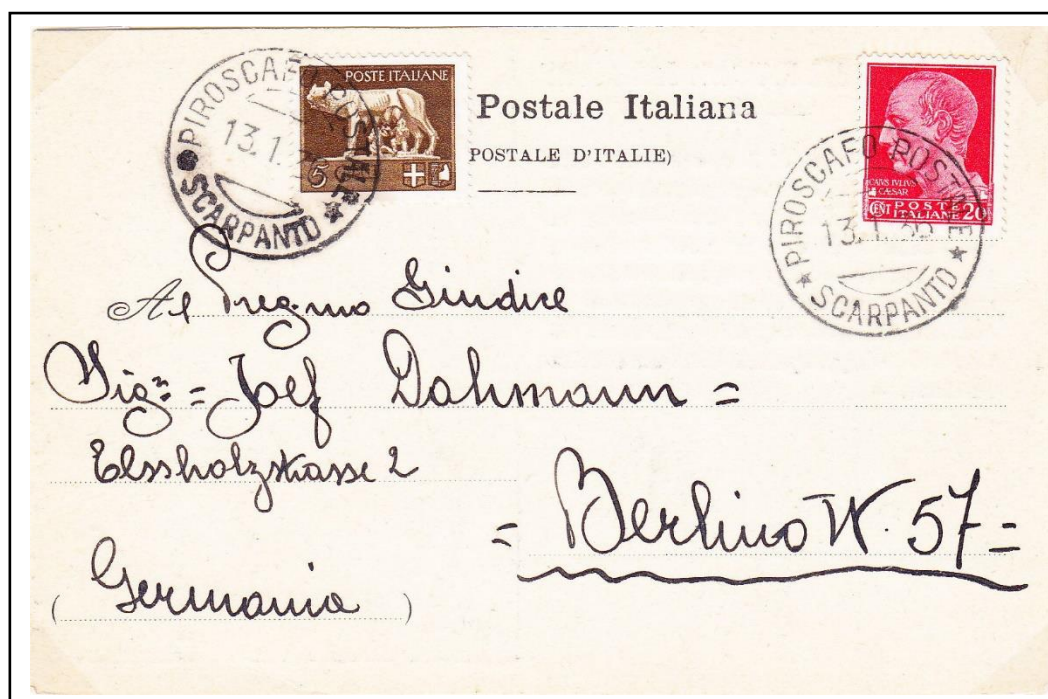 PIROSCAFO POSTALE
13.1.36
SCARPANTO
POSTE ITALIANE
5
Postale Italiana
POSTALE D'ITALIE)
CAIVS IVLIVS
CAESAR
CENT POSTE ITALIANE 20
PIROSCAFO POSTALE
13.1.36
SCARPANTO
Al Pregmo Giudice
Sigr = Josef Dahmann =
Elssholzstrasse 2
= Berlino W. 57 =
(Germania)